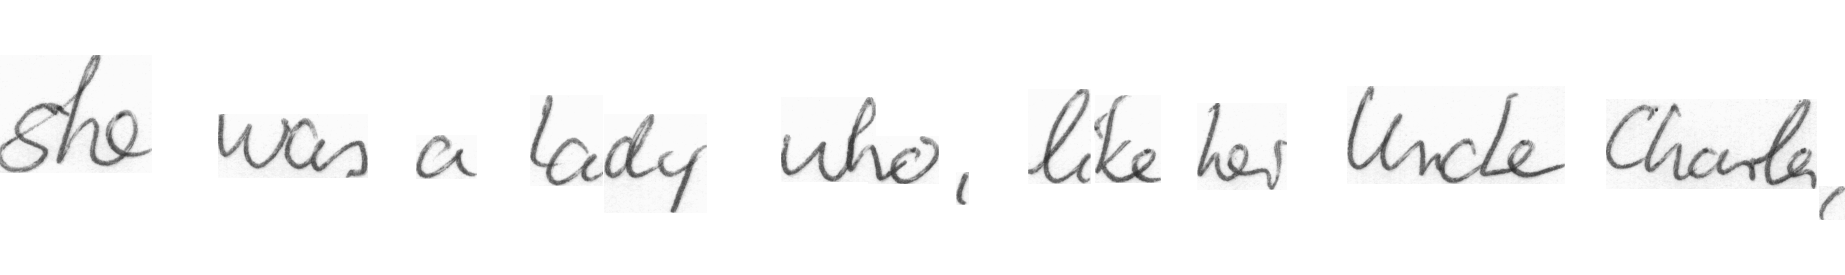 she was a lady who, like her Uncle Charles,